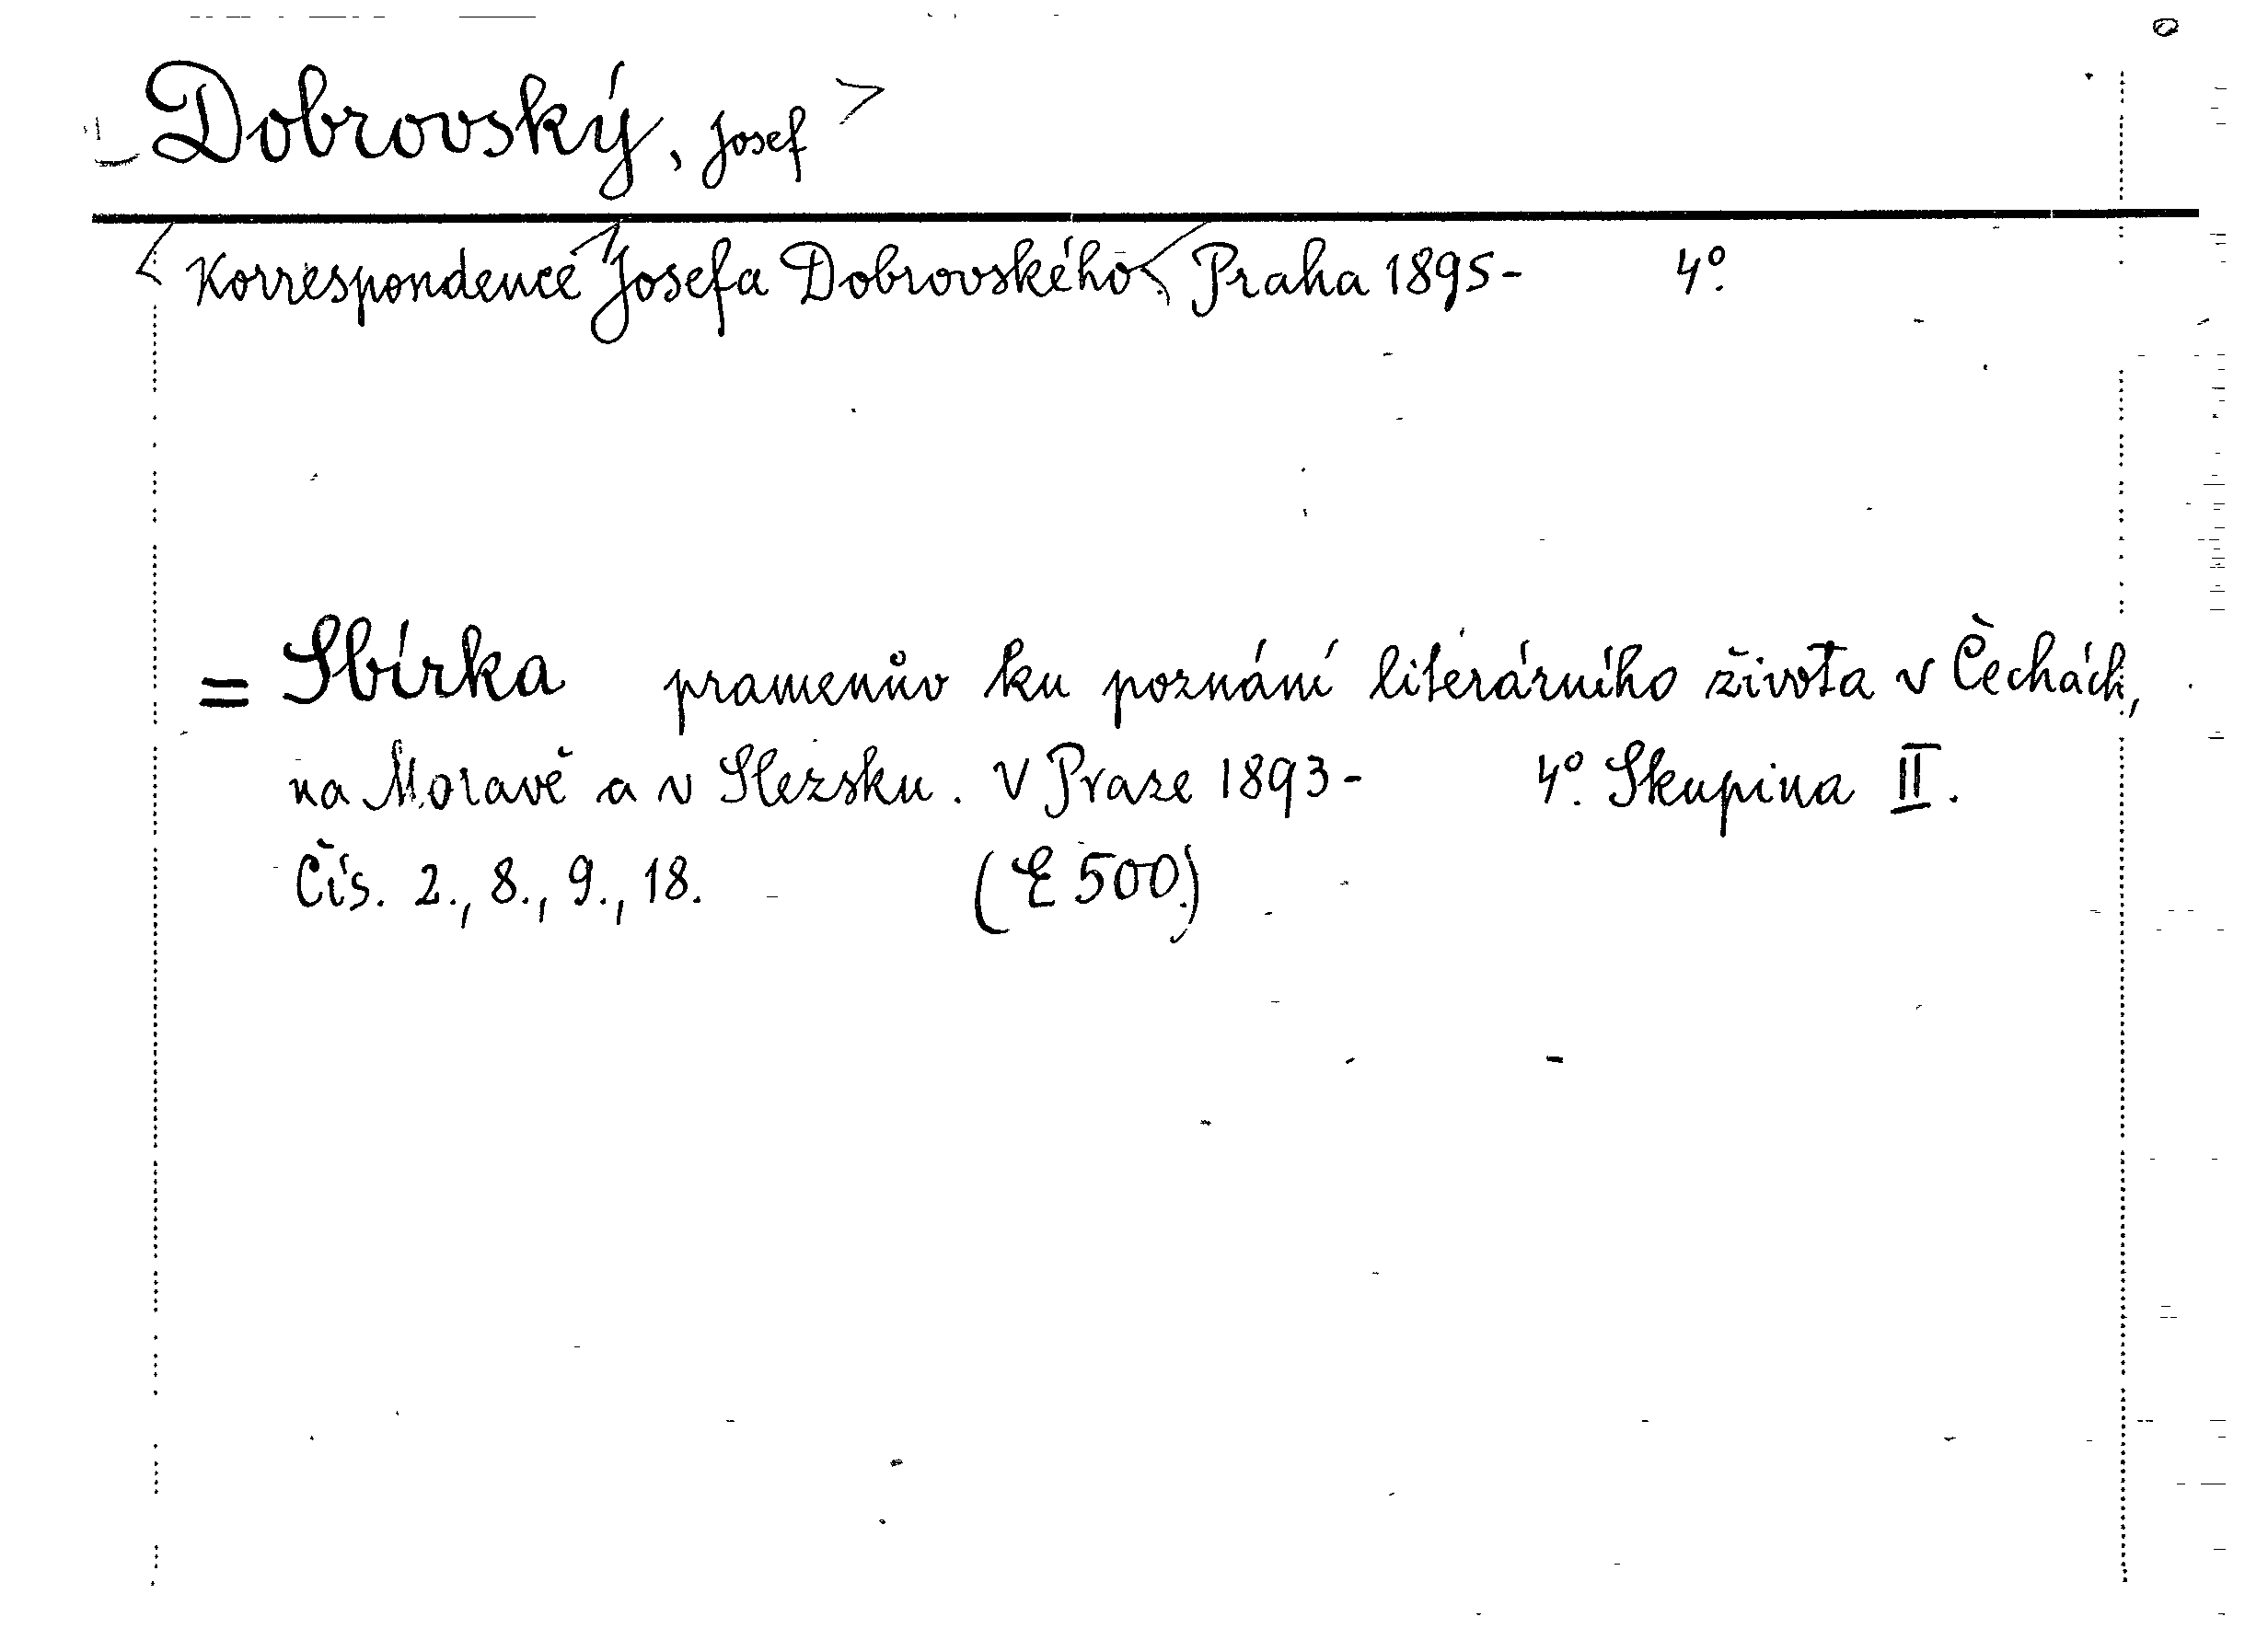 Dobrovský, Josef
Korrespondence Josefa Dobrovského. Praha 1895- 4º.
= Sbírka pramenův ku poznání literárního života v Čechách,
na Moravě a v Slezsku. V Praze 1893- 4º. Skupina II.
Čís. 2., 8., 9., 18. (E 500.)